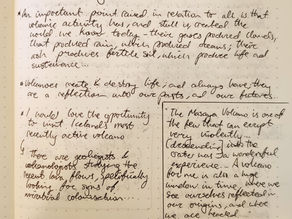 • An important point raised in relation to all is that
volcanic activity has, and still is created the
world we have today – these gases produced clouds,
that produced rain, which produced oceans; their
ash produces fertile soil, which produce life and
sustenance...
• Volcanoes create & destroy life, and always have, they
are a reflection into our pasts, and our futures.
• I would love the opportunity
to visit Iceland's most
recently active volcano
• There are geologists &
volcanologists studying the
recent lava flows, specifically
looking for signs of
microbial colonisation...
The Masaya Volcano is one of
the few that can erupt
very violently
into the
experience. A volcano
for me is also a huge
window in time, where we
see ourselves reflected
our origins, and where
we are headed.